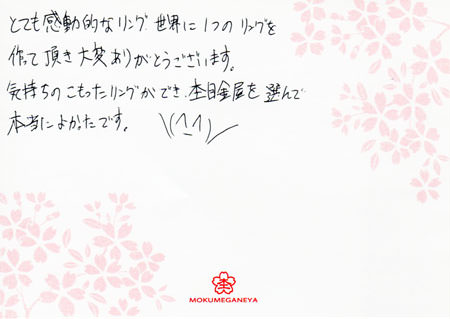 とても感動的なリング 世界に1つのリングを
作って頂き大変ありがとうございます。
気持ちのこもったリングができ、杢目金屋を選んで
本当によかったです。 \(^-^)/
杢
MOKUMEGANEYA